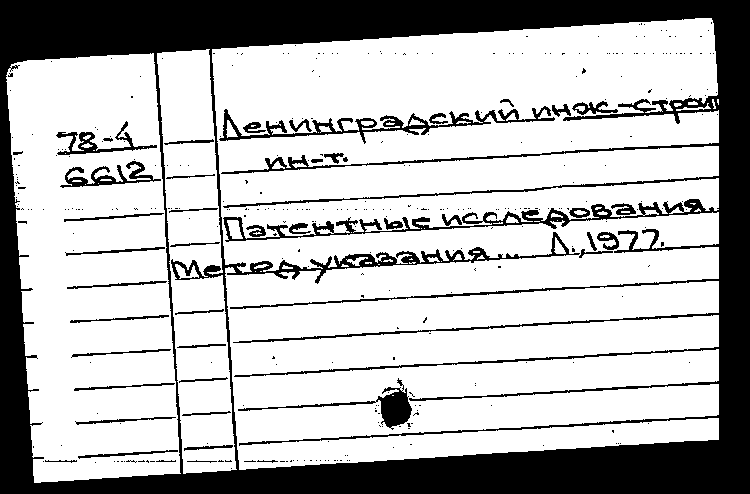 78-4
6612
Ленинградский инж.-строит
ин-т.
Патентные исследования.
Метод. указания... Л., 1977.